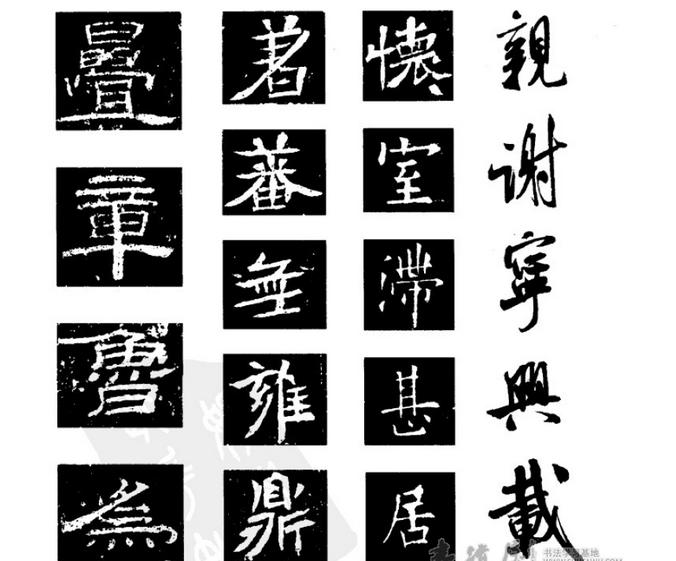 親谢寧興載
懷室滯甚居
著蕃無雍鼎
疊章魯為
书法学习基地